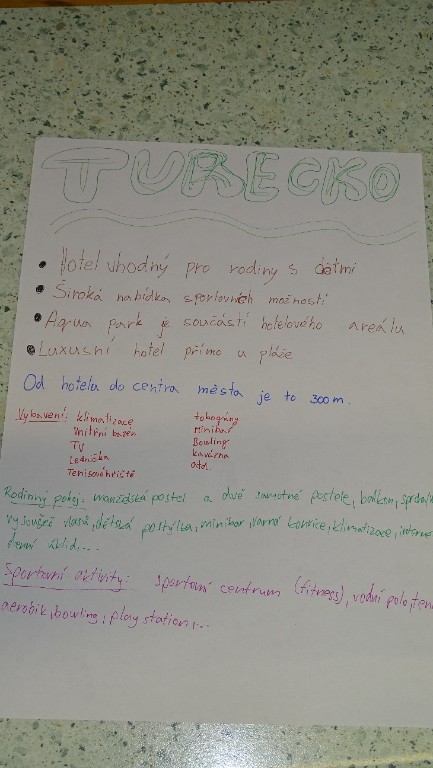 TURECKO
Hotel vhodný pro rodiny s dětmi
Široká nabídka sportovních možností
Aqua park je součástí hotelového areálu
Luxusní hotel přímo u pláže
Od hotelu do centra města je to 300m.
Vybavení: klimatizace tobogány
Vnitřní bazén Minibar
TV Bowling
Lednička kavárna
Tenisové hřiště atd.
Rodinný pokoj: manželská postel a dvě samotné postele, balkon,
vysoušeč vlasů, dětská postýlka, minibar, varná konvice, klimatizace,
denní úklid,...
Sportovní aktivity: sportovní centrum (fitness), vodní polo,
aerobik, bowling, play station,...